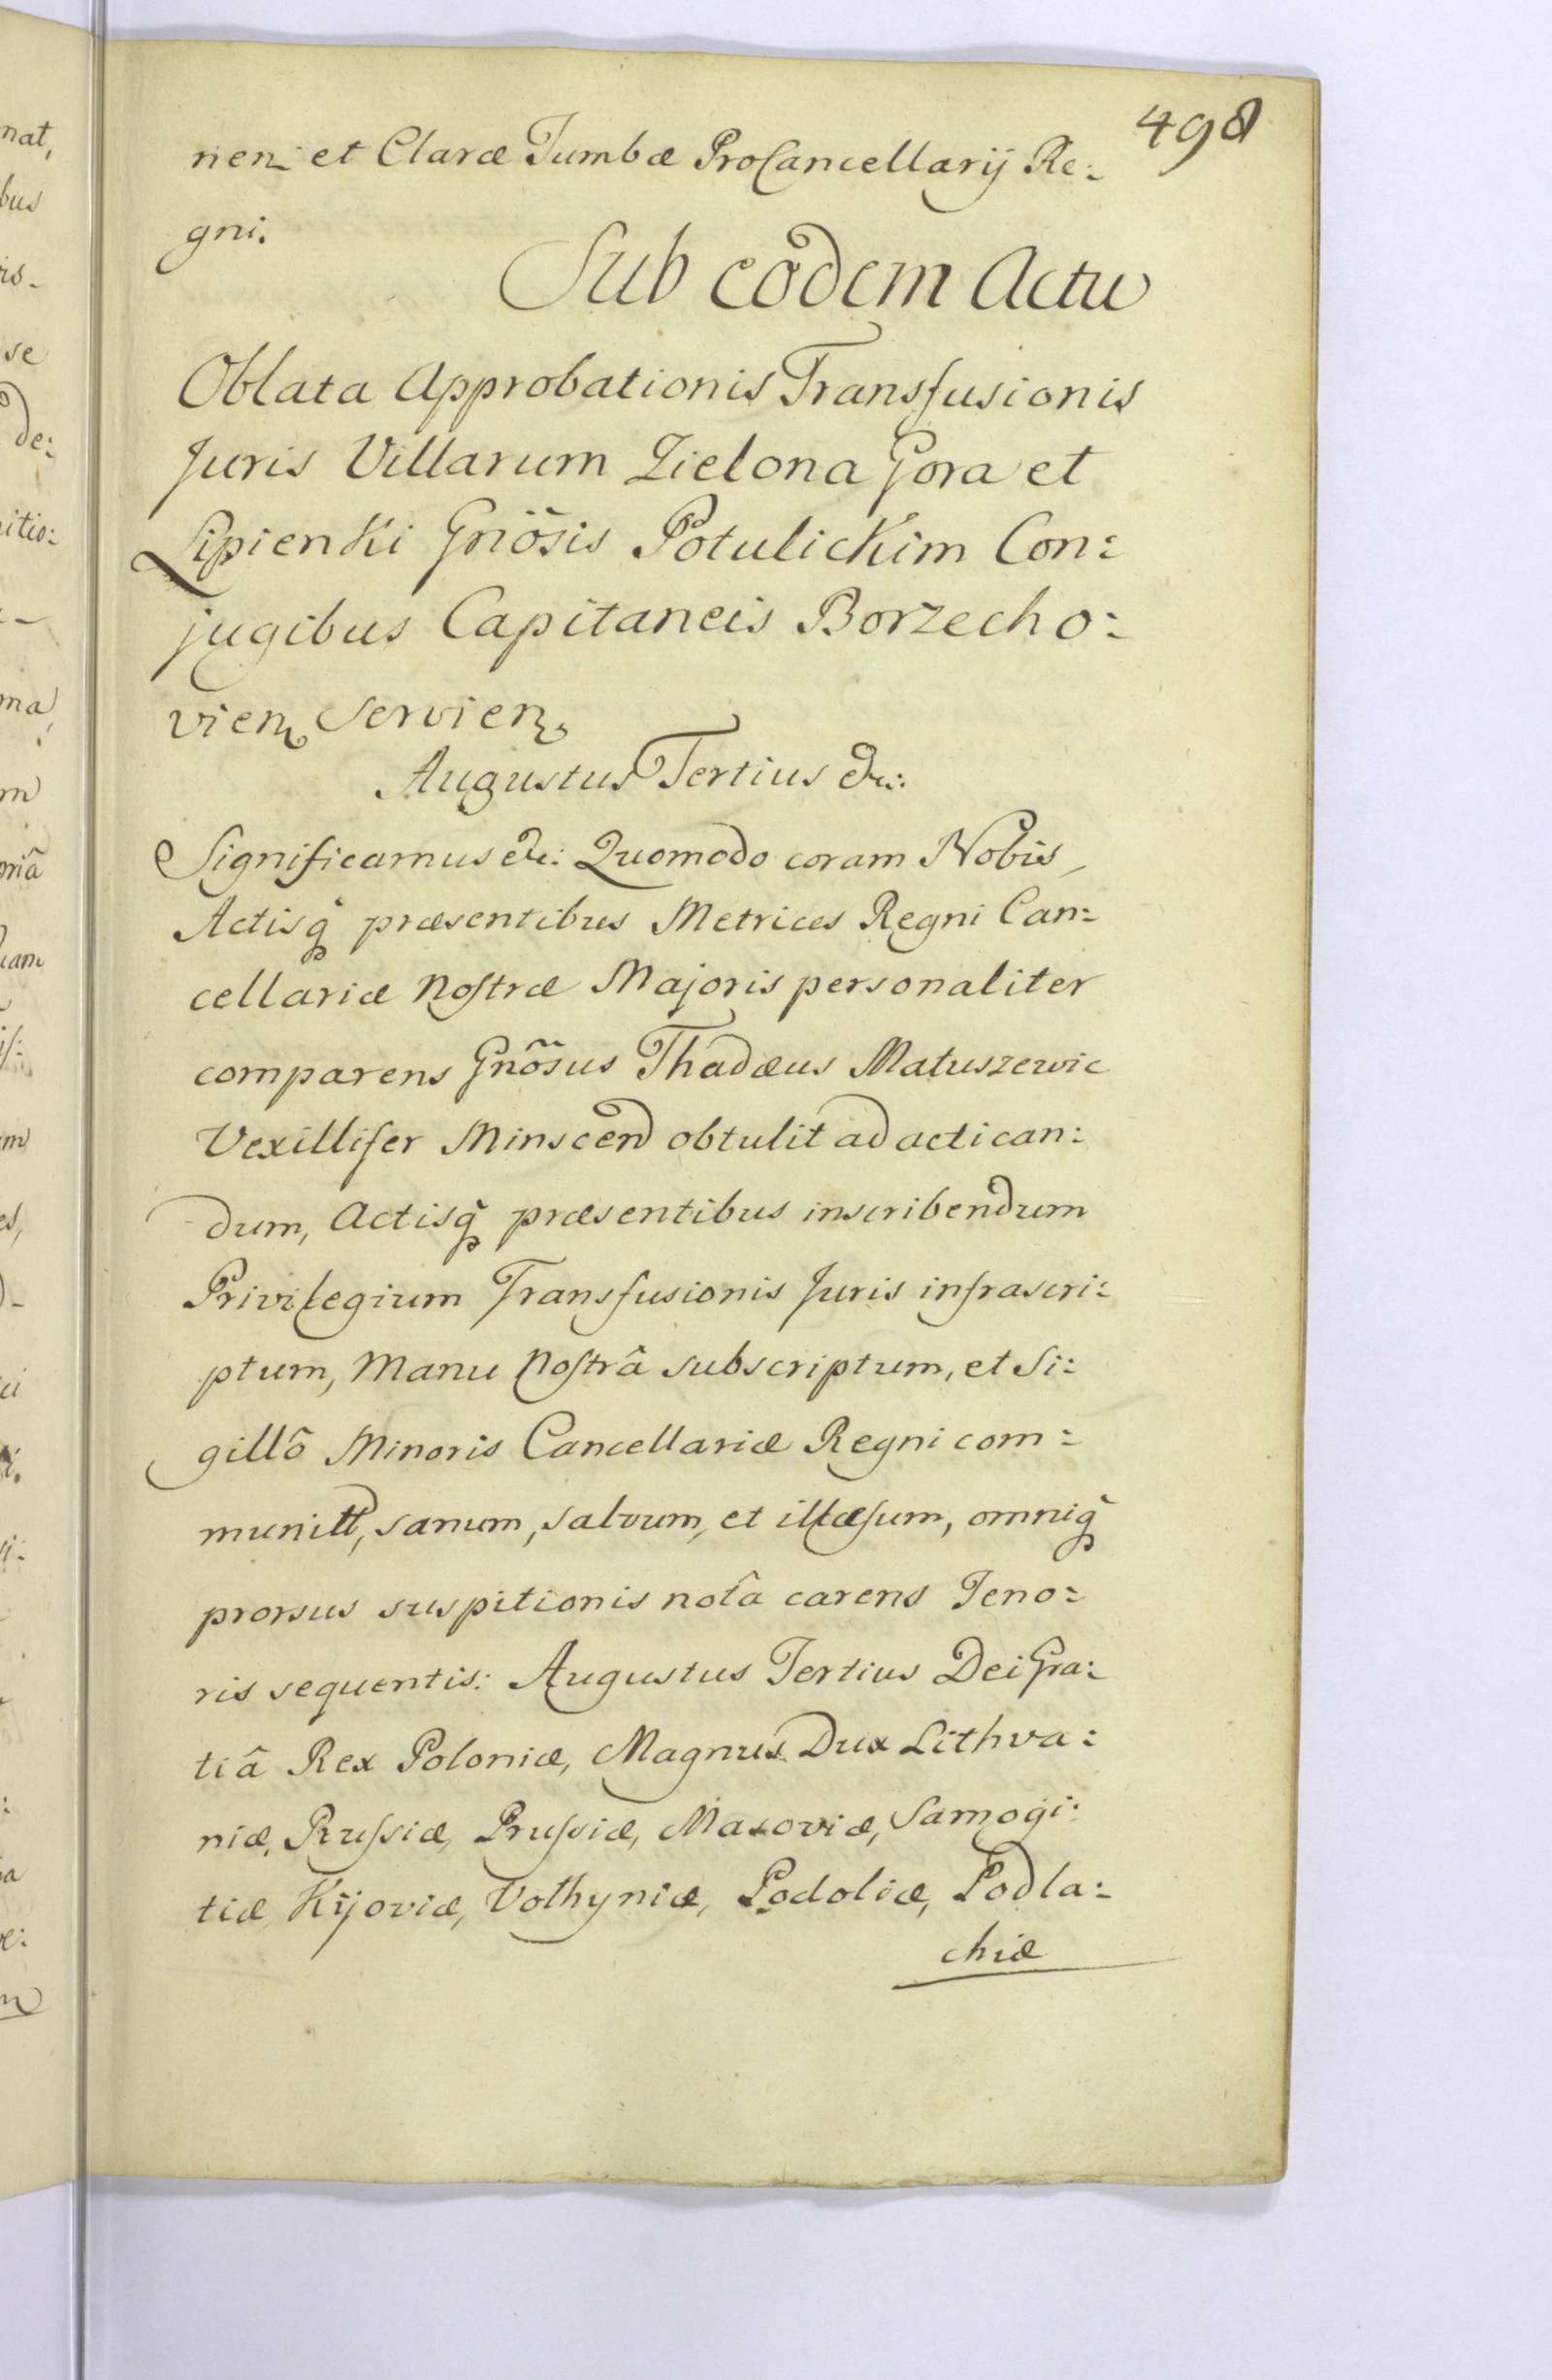 498
nen: et Claræ Tumbæ ProCancellarij Re:
gni.
Sub eodem Actu
Oblata Approbationis Transfusionis
Juris Villarum Zielona Gora et
Lipienki Gnõsis Potulickim Con:
jugibus Capitaneis Borzecho:
vien, Servien,
Augustus Tertius &c:
Significamus &c: Quomodo coram Nobis,
Actisq̃ præsentibus Metrices Regni Can:
cellariæ Nostræ Majoris personaliter
comparens Gnõsus Thadæus Matuszewic
Vexillifer Minscen obtulit ad actican:
dum, Actisq̃ præsentibus inscribendum
Privilegium Transfusionis Juris infrascri:
ptum, Manu Nostrâ subscriptum, et Si:
gillô Minoris Cancellariæ Regni com:
munitt, sanum, salvum, et illæsum, omniq̃
prorsus suspitionis notâ carens Teno:
ris sequentis: Augustus Tertius Dei Gra:
tiâ Rex Poloniæ, Magnus Dux Lithva:
niæ, Russiæ, Prussiæ, Masoviæ, Samogi:
tiæ, Kijoviæ, Volhyniæ, Podoliæ, Podla:
chiæ